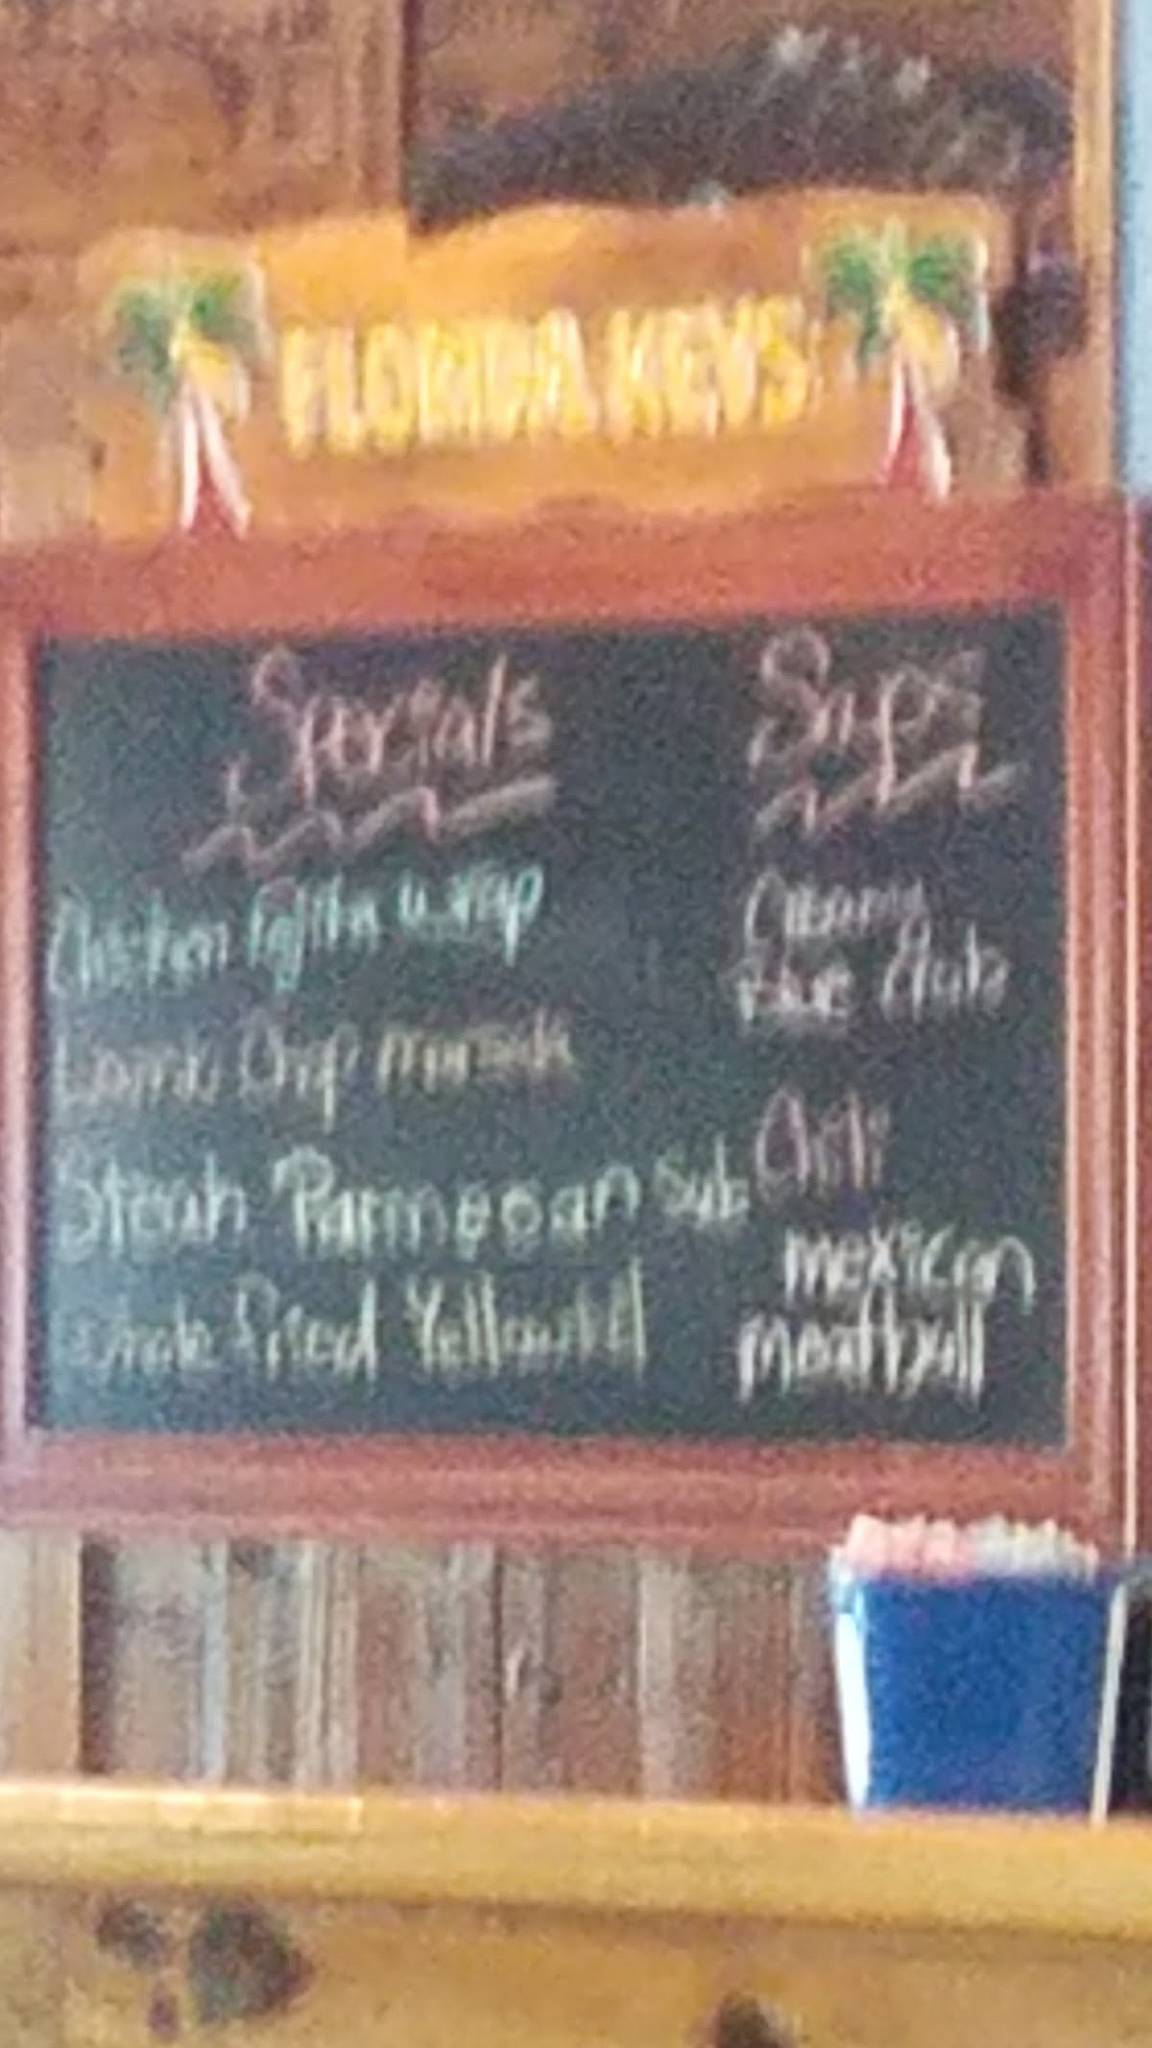 FLORIDA KEYS
Specials
Chicken Fajita Wrap
Chop
Steak Parmesan Sub
Whole Fried Yellowtail
Soups
Creamy
Chili
mexican
meatball